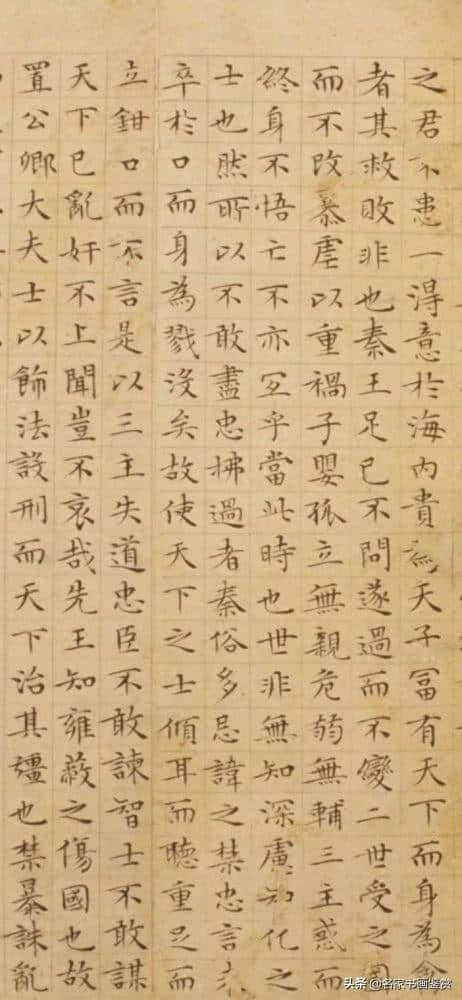 之君不患一淂意於海内貴為天子冨有天下而身為禽
者其救敗非也秦王足已不問遂過而不變二世受之因
而不改暴虐以重禍子嬰孤立無親危弱無輔三主惑而
終身不悟亡不亦冝乎當此時也世非無知深慮知化之
士也然所以不敢盡忠拂過者秦俗多忌諱之禁忠言未
卒於口而身為戮没矣故使天下之士傾耳而聽重足而
立鉗口而不言是以三主失道忠臣不敢諫智士不敢謀
天下已亂奸不上聞豈不哀哉先王知雍蔽之傷國也故
置公卿大夫士以飾法設刑而天下治其彊也禁暴誅亂
头条 @名家书画鉴赏